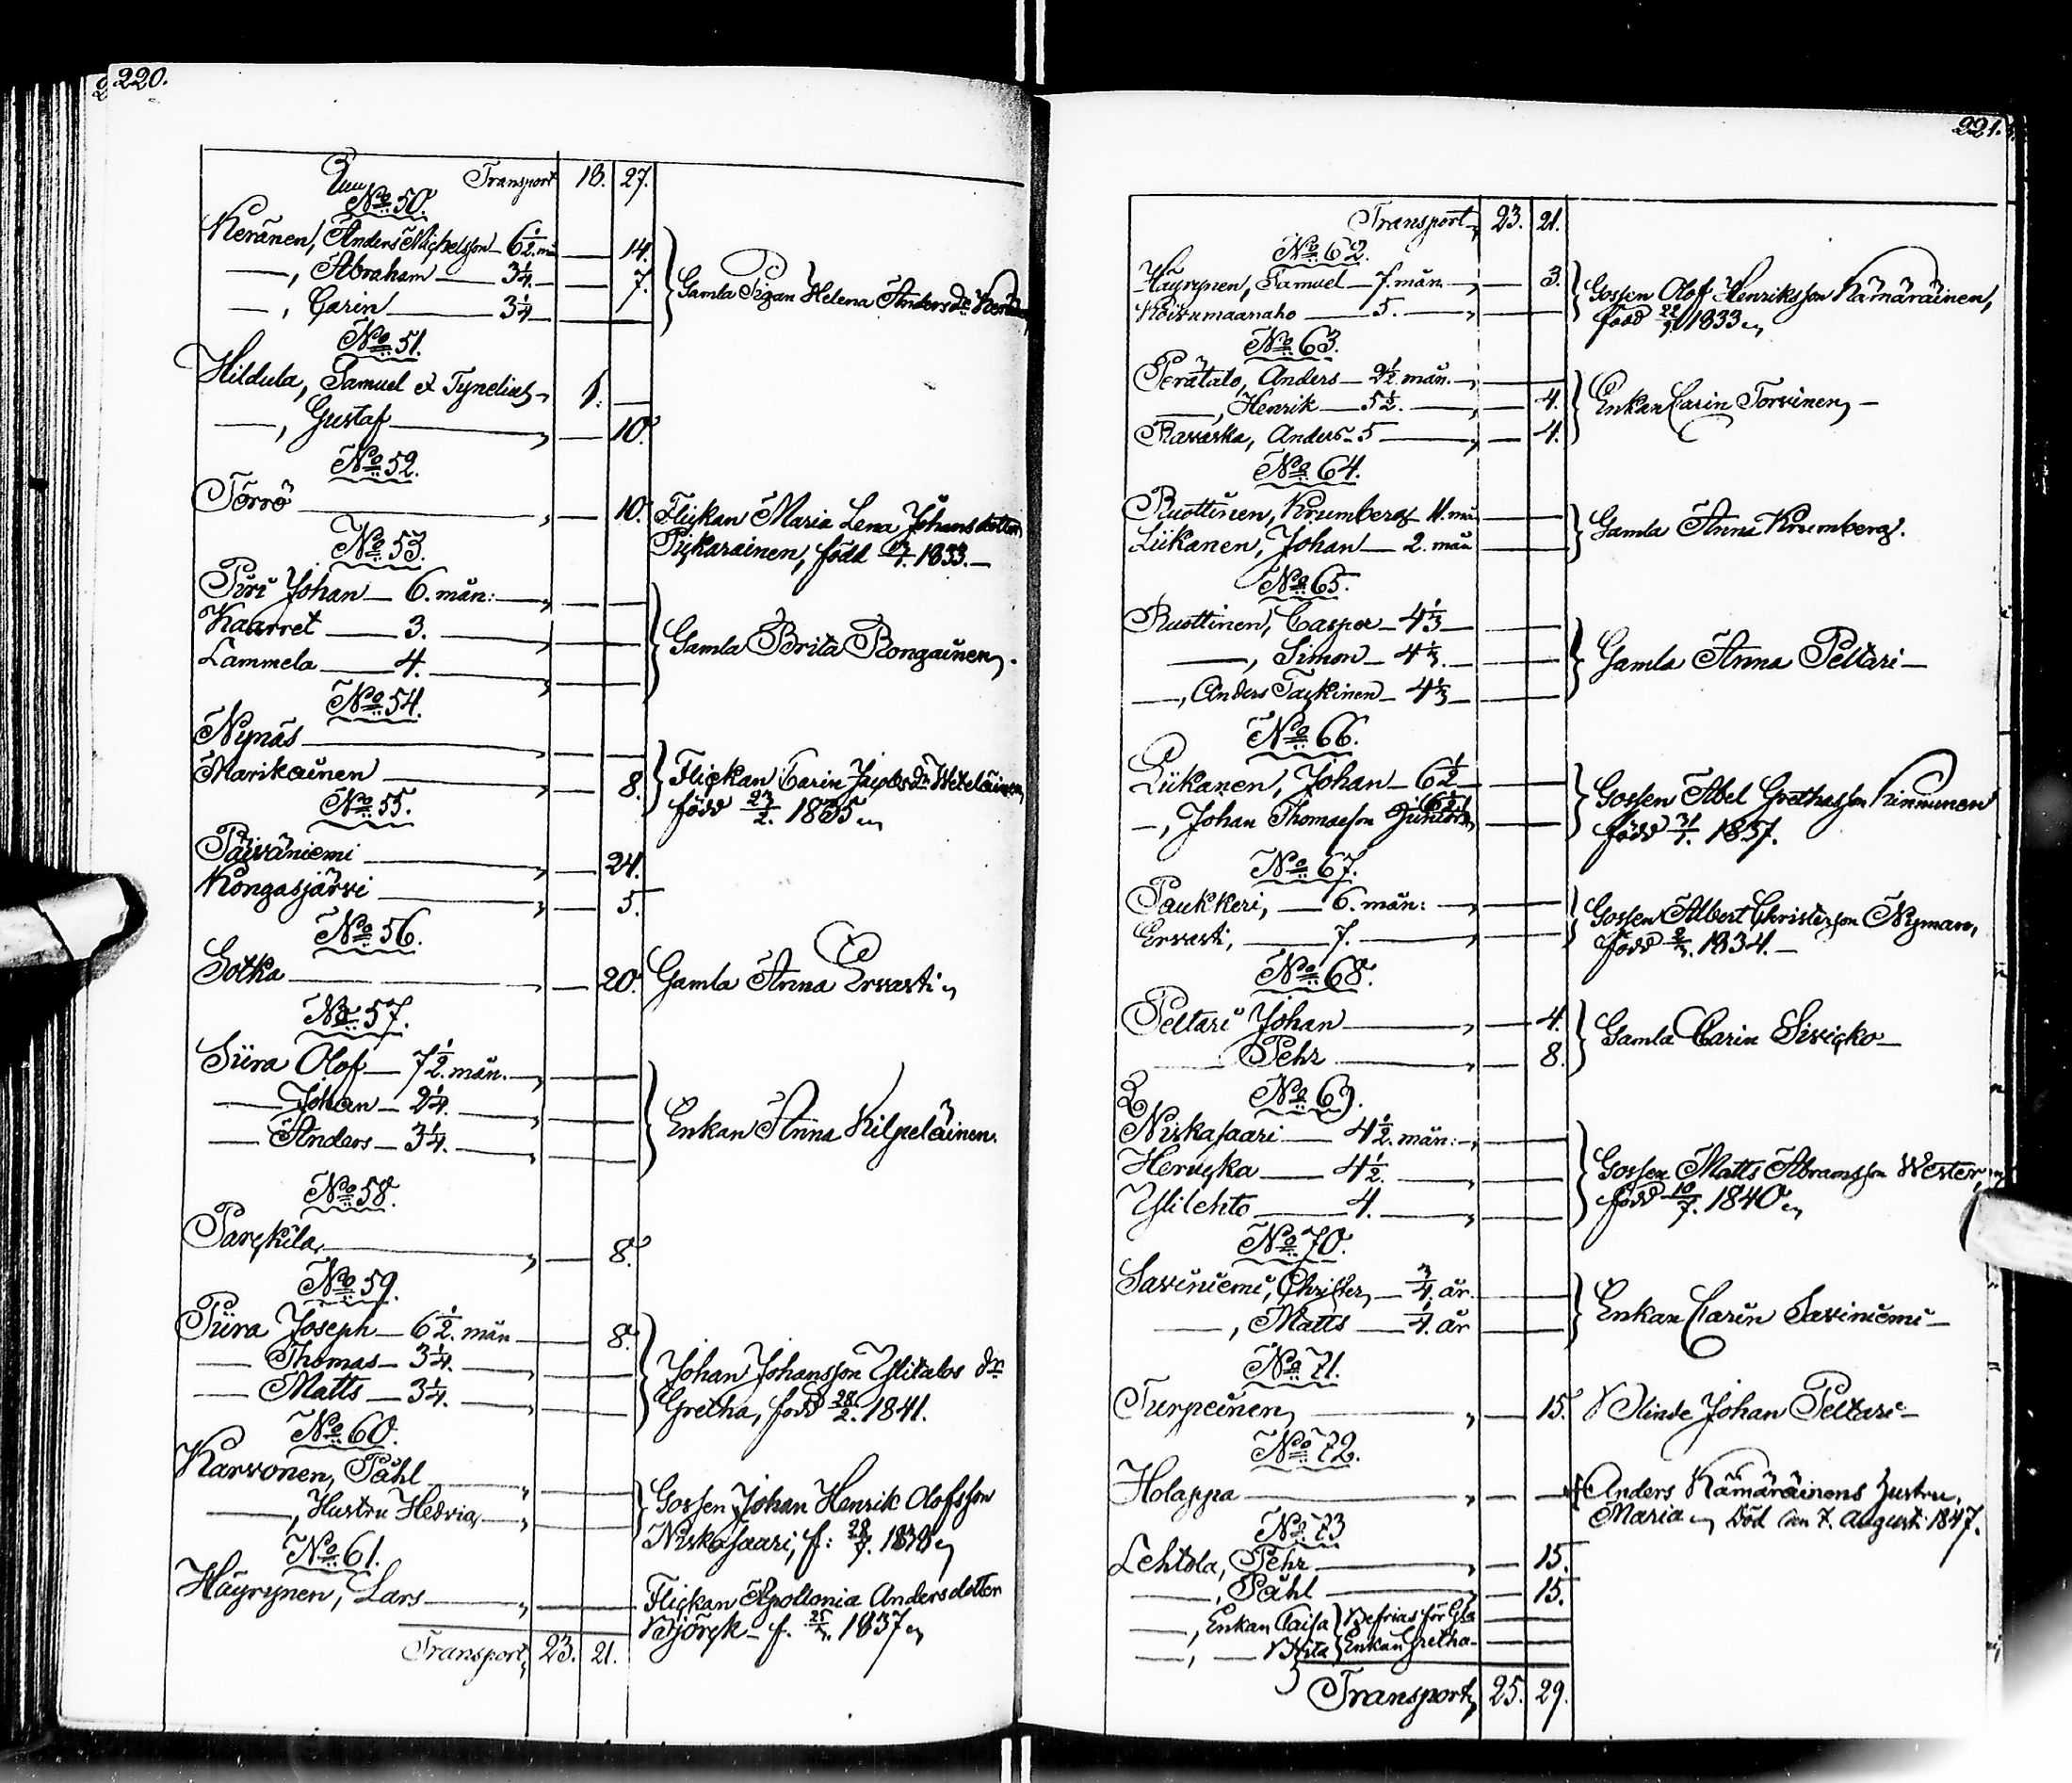 220.
Transport 18. 27.
No 50.
Keränen, Anders Michelsson 6 1/2. mån 14.
—, Abraham 3 1/4. 7.
—, Carin 3 1/4
Gamla Pigan Helena Anders Dr
No 51.
Hildula, Samuel et Tynelius 1.
—, Gustaf 10.
No 52.
Törrö 10. Flickan Maria Lena Johansdotter
Pickarainen, född 1833.
No 53.
Piri Johan 6. mån:
Kaarret 3.
Lammela 4.
Gamla Brita Rongainen.
No 54.
Nynäs
Marikainen 8.
Flickan Carin Jacobs Dr Weteläinen
född 23/2. 1835
No 55.
Päiväniemi 24.
Kongasjärvi 5.
No 56.
Sotka 20. Gamla Anna Ervasti
No 57.
Siira Olof 7 1/2. mån.
— Johan 2 1/4.
— Anders 3 1/4.
Enkan Anna Kilpeläinen.
No 58.
Parckila 8.
No 59.
Piira Joseph 6 1/2. mån 8.
— Thomas 3 1/4.
— Matts 3 1/4.
Johan Johansson Ylitalos dr
Gretha, född 28/2. 1841.
No 60.
Karvonen, Påhl
—, Hustru Hedvig
Gossen Johan Henrik Olofsson
Niskasaari, f:
No 61.
Häyrynen, Lars
Flickan Apollonia Andersdotter
Björck f. 1837
Transport 23. 21.
221.
Transport 23. 21.
No 62.
Häyrynen, Samuel 7. mån. 3.
Koivumaanaho 5.
Gossen Olof Henriksson Kämäräinen,
född 1833
No 63.
Perätalo, Anders 2 1/2. mån.
—, Henrik 5 1/2. 4.
Ravaska, Anders 5 4.
Enkan Carin Torvinen
No 64.
Ruottinen, Krumberg 11. mån
Liikanen, Johan 2. mån
Gamla Anna Krumberg.
No 65.
Ruottinen, Casper 4 1/3
—, Simon 4 1/3.
—, Anders Tackinen 4 1/3
Gamla Anna Peltari
No 66.
Liikanen, Johan 6 1/2
—, Johan Thomasson Junior
Gossen Abel Grethasson Kinnunen
född 31/7. 1837.
No 67.
Paukkeri, 6. mån:
Ervasti, 7.
Gossen Albert Christersson Nyman,
född 1834.
No 68.
Peltari Johan 4.
Pehr 8.
Gamla Carin Sivicko
No 69.
Niskasaari 4 1/2. mån:
Herucka 4 1/2.
Ylilehto 4.
Gossen Matts Abramsson Wester,
född 10/7. 1840
No 70.
Saviniemi, Christer, 3/4. år.
—, Matts 1/4. år
Enkan Carin Saviniemi
No 71.
Turpeinen 15. Blinde Johan Peltari
No 72.
Holappa
Anders Kämäräinens hustru,
Maria död den 7. augusti 1847.
No 73
Lehtola, Pehr 15.
—, Påhl 15.
—, Enkan Caisa } Befrias för Gla
—, — Brita } Enkan Gretha
Transport 25. 29.